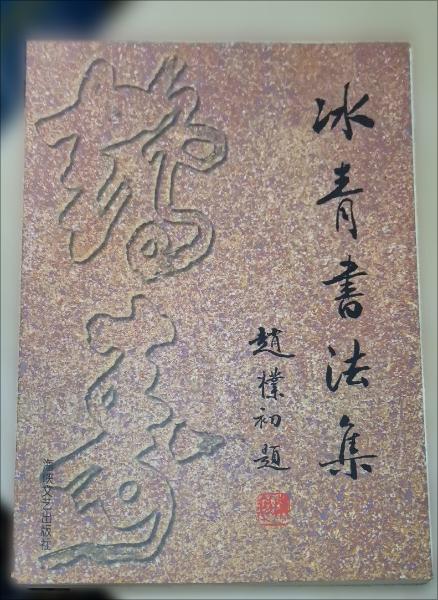 冰青書法集
趙樸初題
海峡文艺出版社